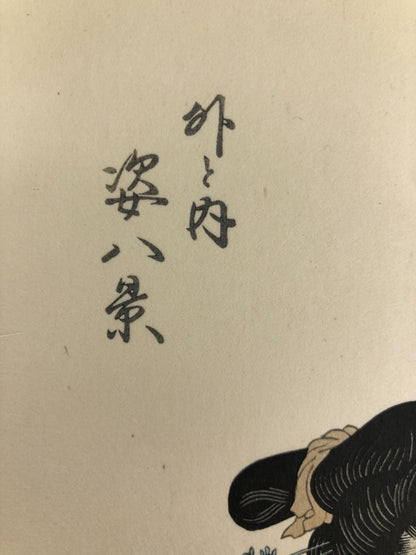 外と内
姿八景